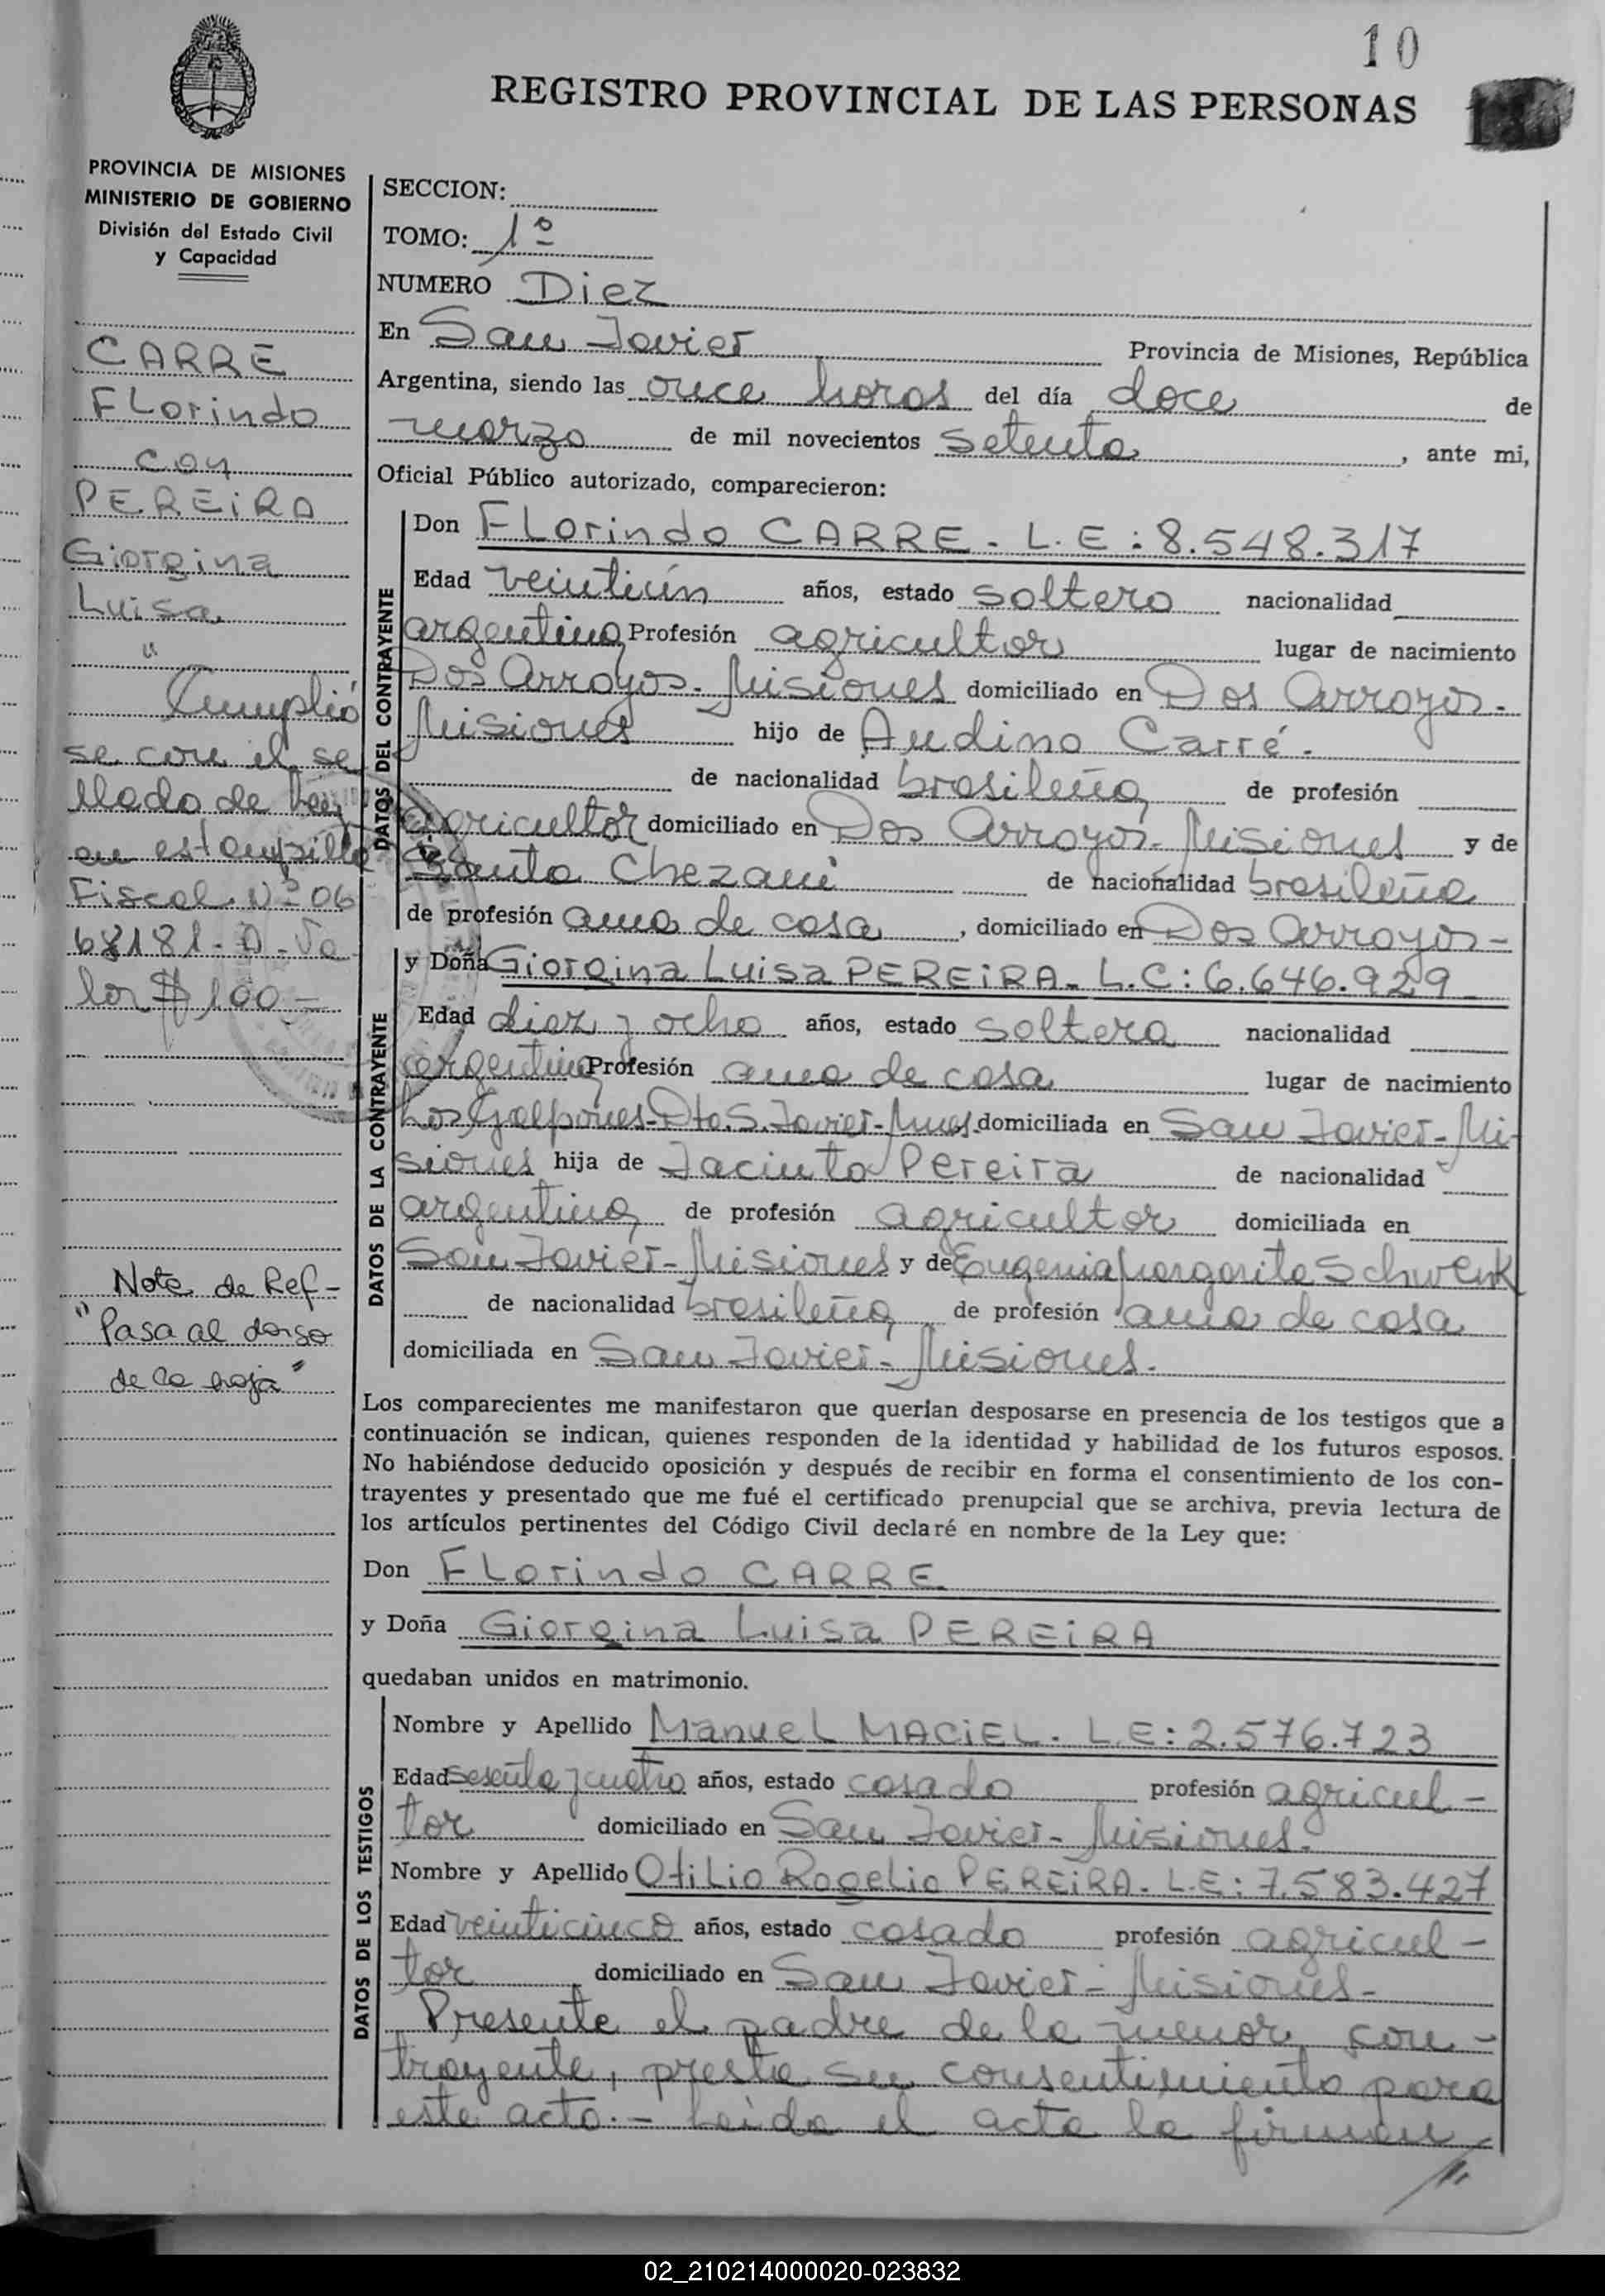 10
REGISTRO PROVINCIAL DE LAS PERSONAS
PROVINCIA DE MISIONES
MINISTERIO DE GOBIERNO
División del Estado Civil
y Capacidad
CARRE
FLorindo
con
PEREiRA
Giorgina
Luisa.
"
Cumplió
se con el se
llado de Ley
en estampilla
Fiscal Nº 06
68181-A-Va
lor $ 100.-
Nota de Ref-
"Pasa al dorso
de la hoja"
SECCION:
TOMO: 1º
NUMERO Diez
En San Javier Provincia de Misiones, República
Argentina, siendo las once horas del día doce de
marzo de mil novecientos setenta, ante mi,
Oficial Público autorizado, comparecieron:
DATOS DEL CONTRAYENTE
Don FLorindo CARRE. L.E: 8.548.317
Edad veintiún años, estado soltero nacionalidad
argentina Profesión agricultor lugar de nacimiento
Dos Arroyos-Misiones domiciliado en Dos Arroyos-
Misiones hijo de Audino Carré.
de nacionalidad brasileña de profesión
agricultor domiciliado en Dos Arroyos-Misiones y de
Santa Chezani de nacionalidad brasileña
de profesión ama de casa, domiciliado en Dos Arroyos-
DATOS DE LA CONTRAYENTE
y Doña Giorgina Luisa PEREiRA. L.C: 6.646.929
Edad diez y ocho años, estado soltera nacionalidad
argentina Profesión ama de casa lugar de nacimiento
Los Galpones-Dto.S.Javier-Mnes domiciliada en San Javier-Mi-
siones hija de Jacinto Pereira de nacionalidad
argentina de profesión agricultor domiciliada en
San Javier-Misiones y de Eugenia Margarita Schwenk
de nacionalidad brasileña de profesión ama de casa
domiciliada en San Javier-Misiones.
Los comparecientes me manifestaron que querían desposarse en presencia de los testigos que a
continuación se indican, quienes responden de la identidad y habilidad de los futuros esposos.
No habiéndose deducido oposición y después de recibir en forma el consentimiento de los con-
trayentes y presentado que me fué el certificado prenupcial que se archiva, previa lectura de
los artículos pertinentes del Código Civil declaré en nombre de la Ley que:
Don FLorindo CARRE
y Doña Giorgina Luisa PEREiRA
quedaban unidos en matrimonio.
DATOS DE LOS TESTIGOS
Nombre y Apellido ManueL MACiEL. L.E: 2.576.723
Edad sesenta y cuatro años, estado casado profesión agricul-
tor domiciliado en San Javier-Misiones.
Nombre y Apellido OtiLio RogeLio PEREiRA. L.E: 7.583.427
Edad veinticinco años, estado casado profesión agricul-
tor domiciliado en San Javier-Misiones-
Presente el padre de la menor con-
trayente, presta su consentimiento para
este acto.- Leída el acta la firman
02_210214000020-023832